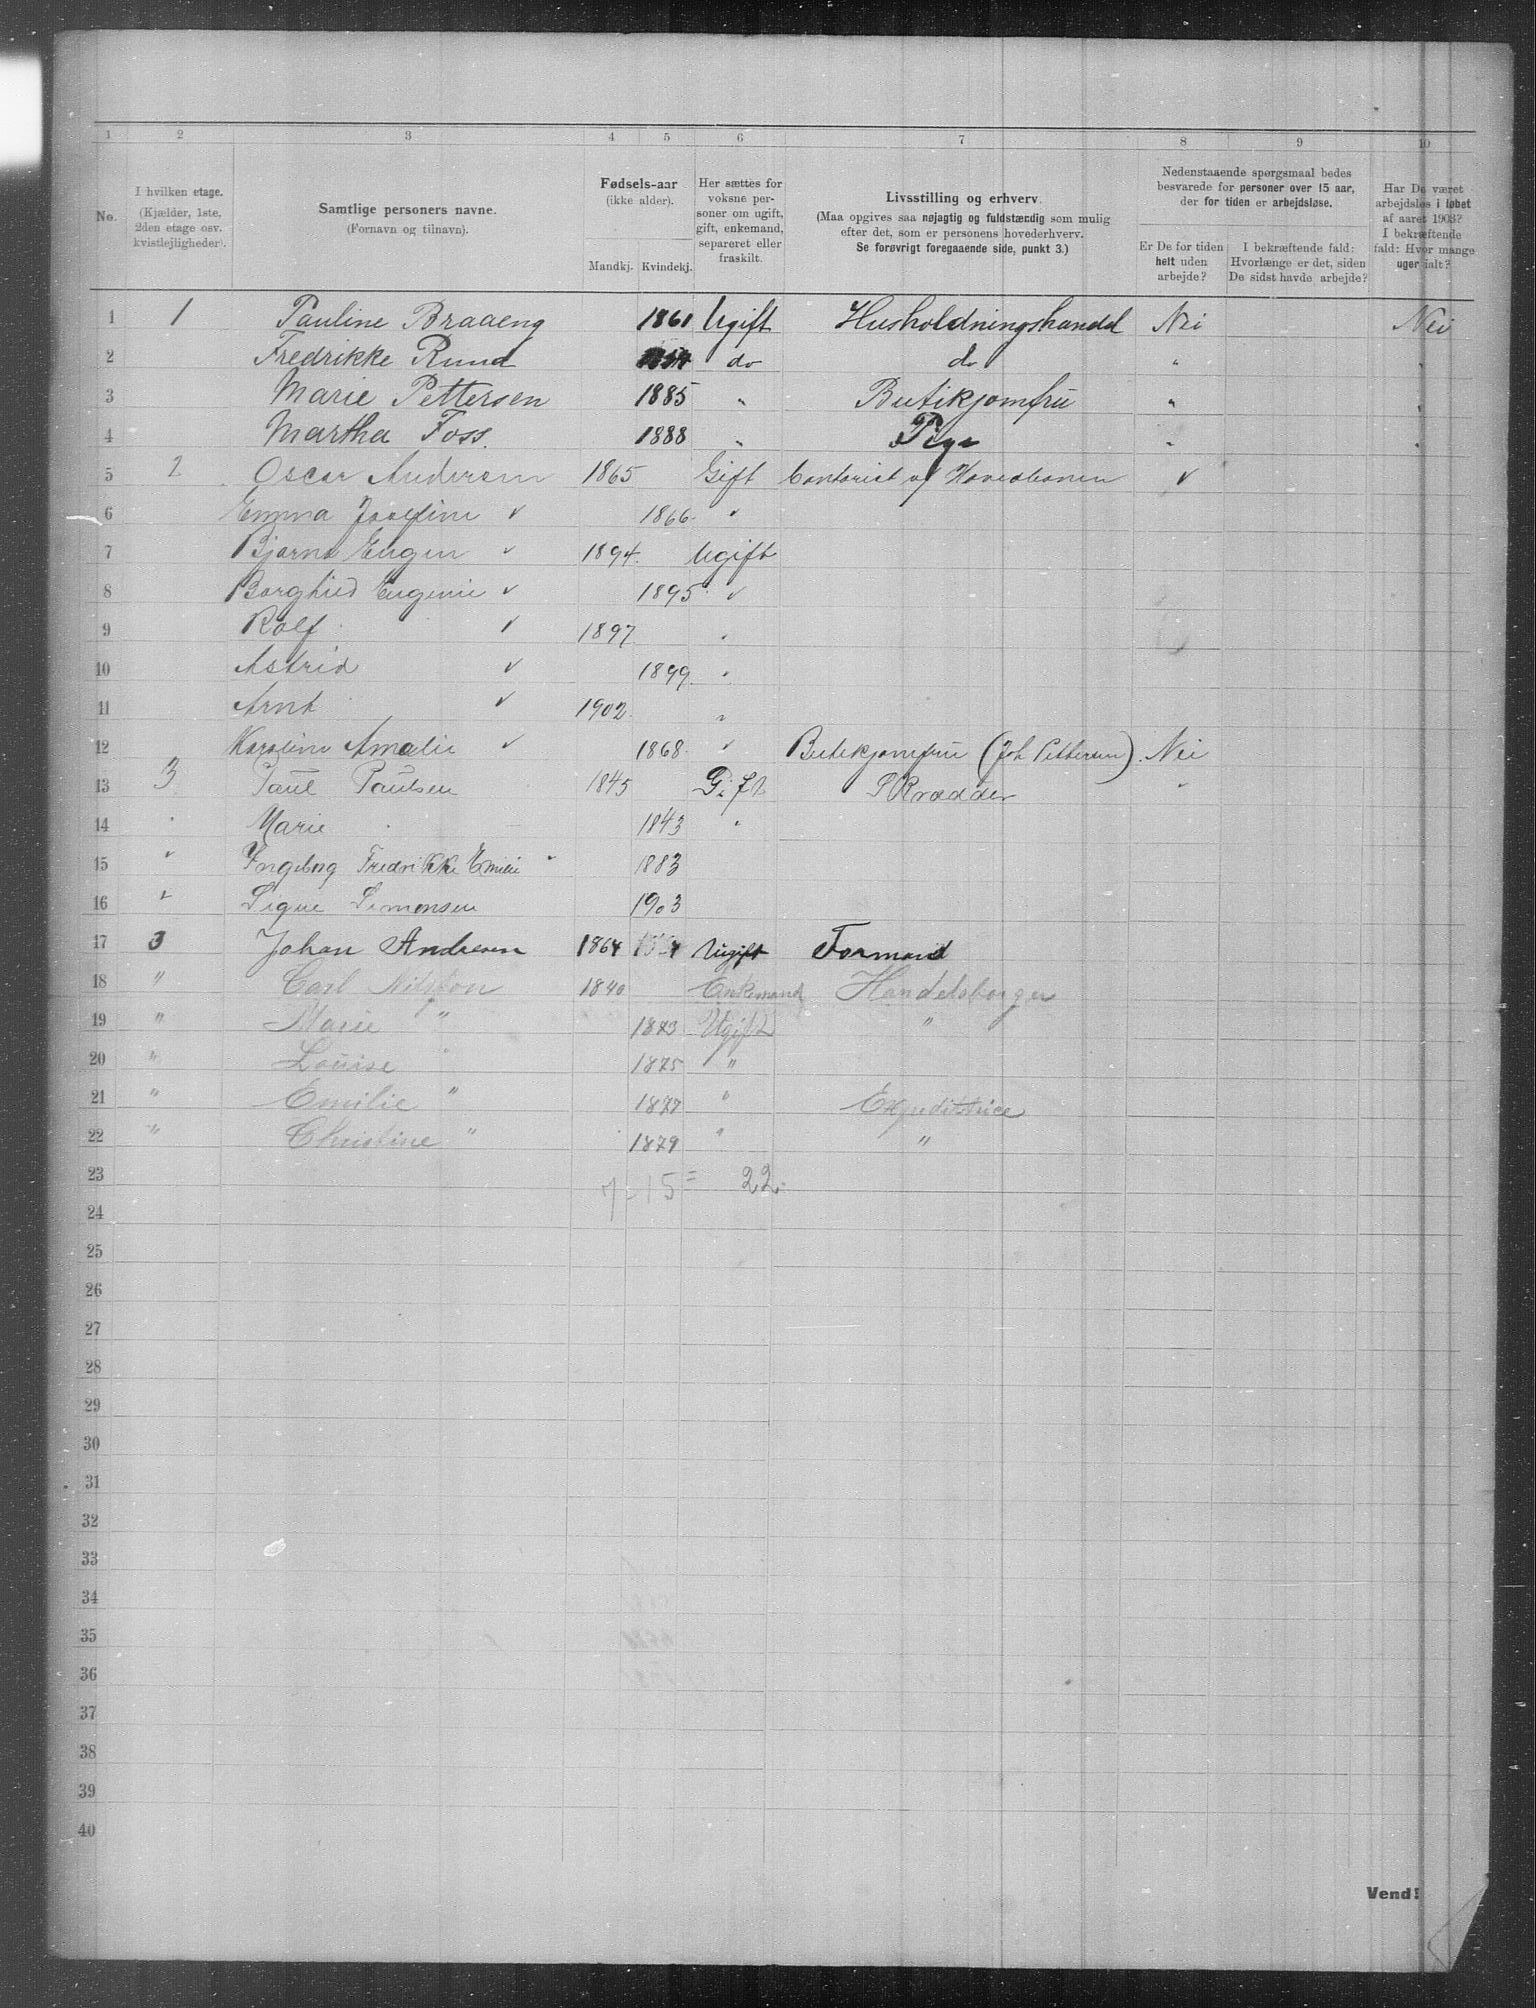 1 2 3 4 5 6 7 8 9 10
No.
I hvilken etage.
(Kjælder, 1ste,
2den etage osv.
kvistlejligheder).
Samtlige personers navne.
(Fornavn og tilnavn).
Fødsels-aar
(ikke alder).
Mandkj. Kvindekj.
Her sættes for
voksne per-
soner om ugift,
gift, enkemand,
separeret eller
fraskilt.
Livsstilling og erhverv.
(Maa opgives saa nøjagtig og fuldstærdig som mulig
efter det, som er personens hovederhverv.
Se forøvrigt foregaaende side, punkt 3.)
Nedenstaaende spørgsmaal bedes
besvarede for personer over 15 aar,
der for tiden er arbejdsløse.
Er De for tiden
helt uden
arbejde?
I bekræftende fald:
Hvorlænge er det, siden
De sidst havde arbejde?
Har De været
arbejdsløs i løbet
af aaret 1903?
I bekræftende
fald: Hvor mange
uger ialt?
1 1 Pauline Braaeng 1861 Ugift Husholdningshandel Nei Nei
2 Fredrikke Rund do do "
3 Marie Pettersen 1885 " Butikjomfru "
4 Martha Foss. 1888 " Pige "
5 2 Oscar Andersen 1865 Gift Contorist v/ Hovedbanen ✓
6 Emma Josefine ✓ 1866. "
7 Bjarne Eugen ✓ 1894. Ugift
8 Borghild Eugenie ✓ 1895. ✓
9 Rolf ✓ 1897 "
10 Astrid ✓ 1899. "
11 Arnt ✓ 1902 "
12 Karoline Amalie ✓ 1868. ✓ Butikjomfru (Joh Pettersen). Nei
13 3 Paul Paulsen 1845 Gift "
14 " Marie 1843 "
15 ✓ Ingeborg Fredrikke Emilie " 1883
16 ✓ Signe Simonsen 1903
17 3 Johan Andresen 1864 Ugift Formand
18 " Carl Nilsson 1840 Enkemand Handelsborger
19 " Marie " 1873 Ugift "
20 " Louise " 1875 "
21 " Emilie " 1877 " Expeditrice
22 " Christine " 1879 " "
23 7-15= 22.
24
25
26
27
28
29
30
31
32
33
34
35
36
37
38
39
40
Vend!